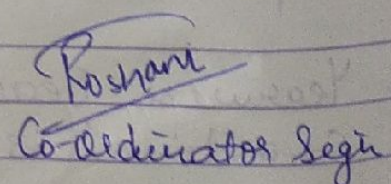 Roshani
Co-ordinator Sign